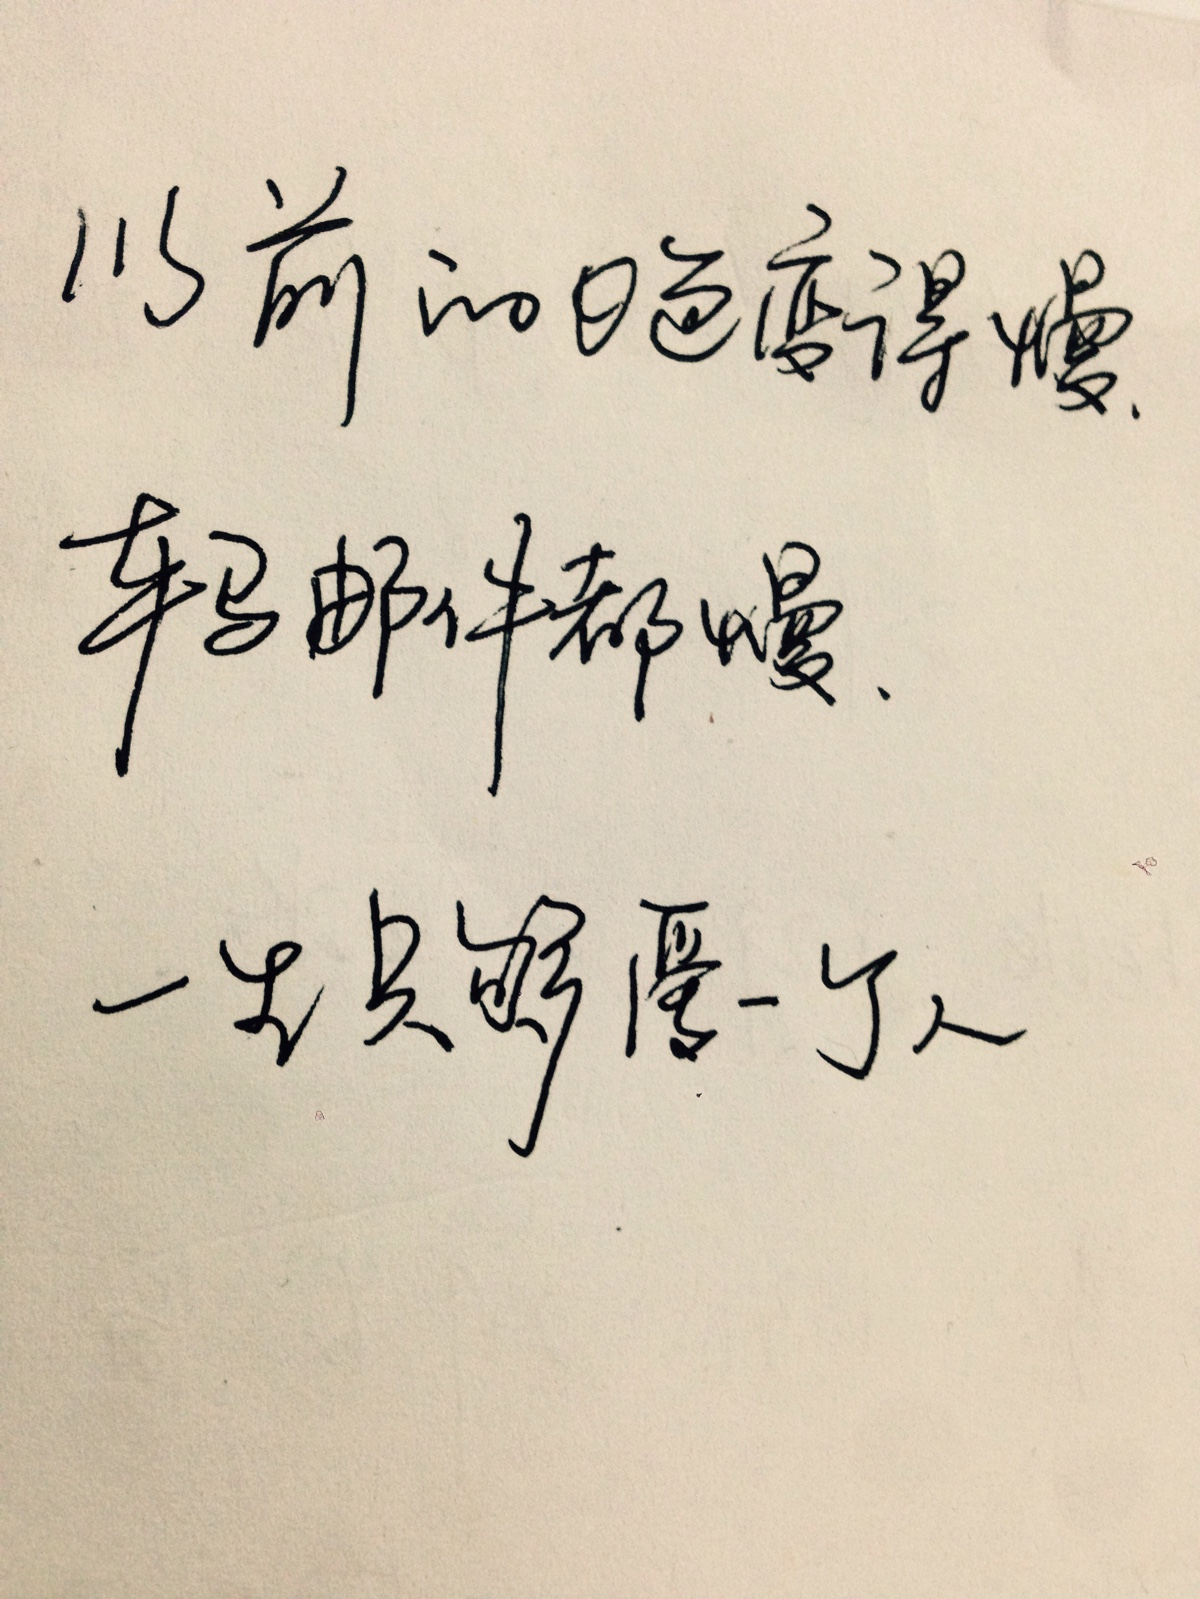 以前的日色变得慢、
车马邮件都慢、
一生只够爱一个人